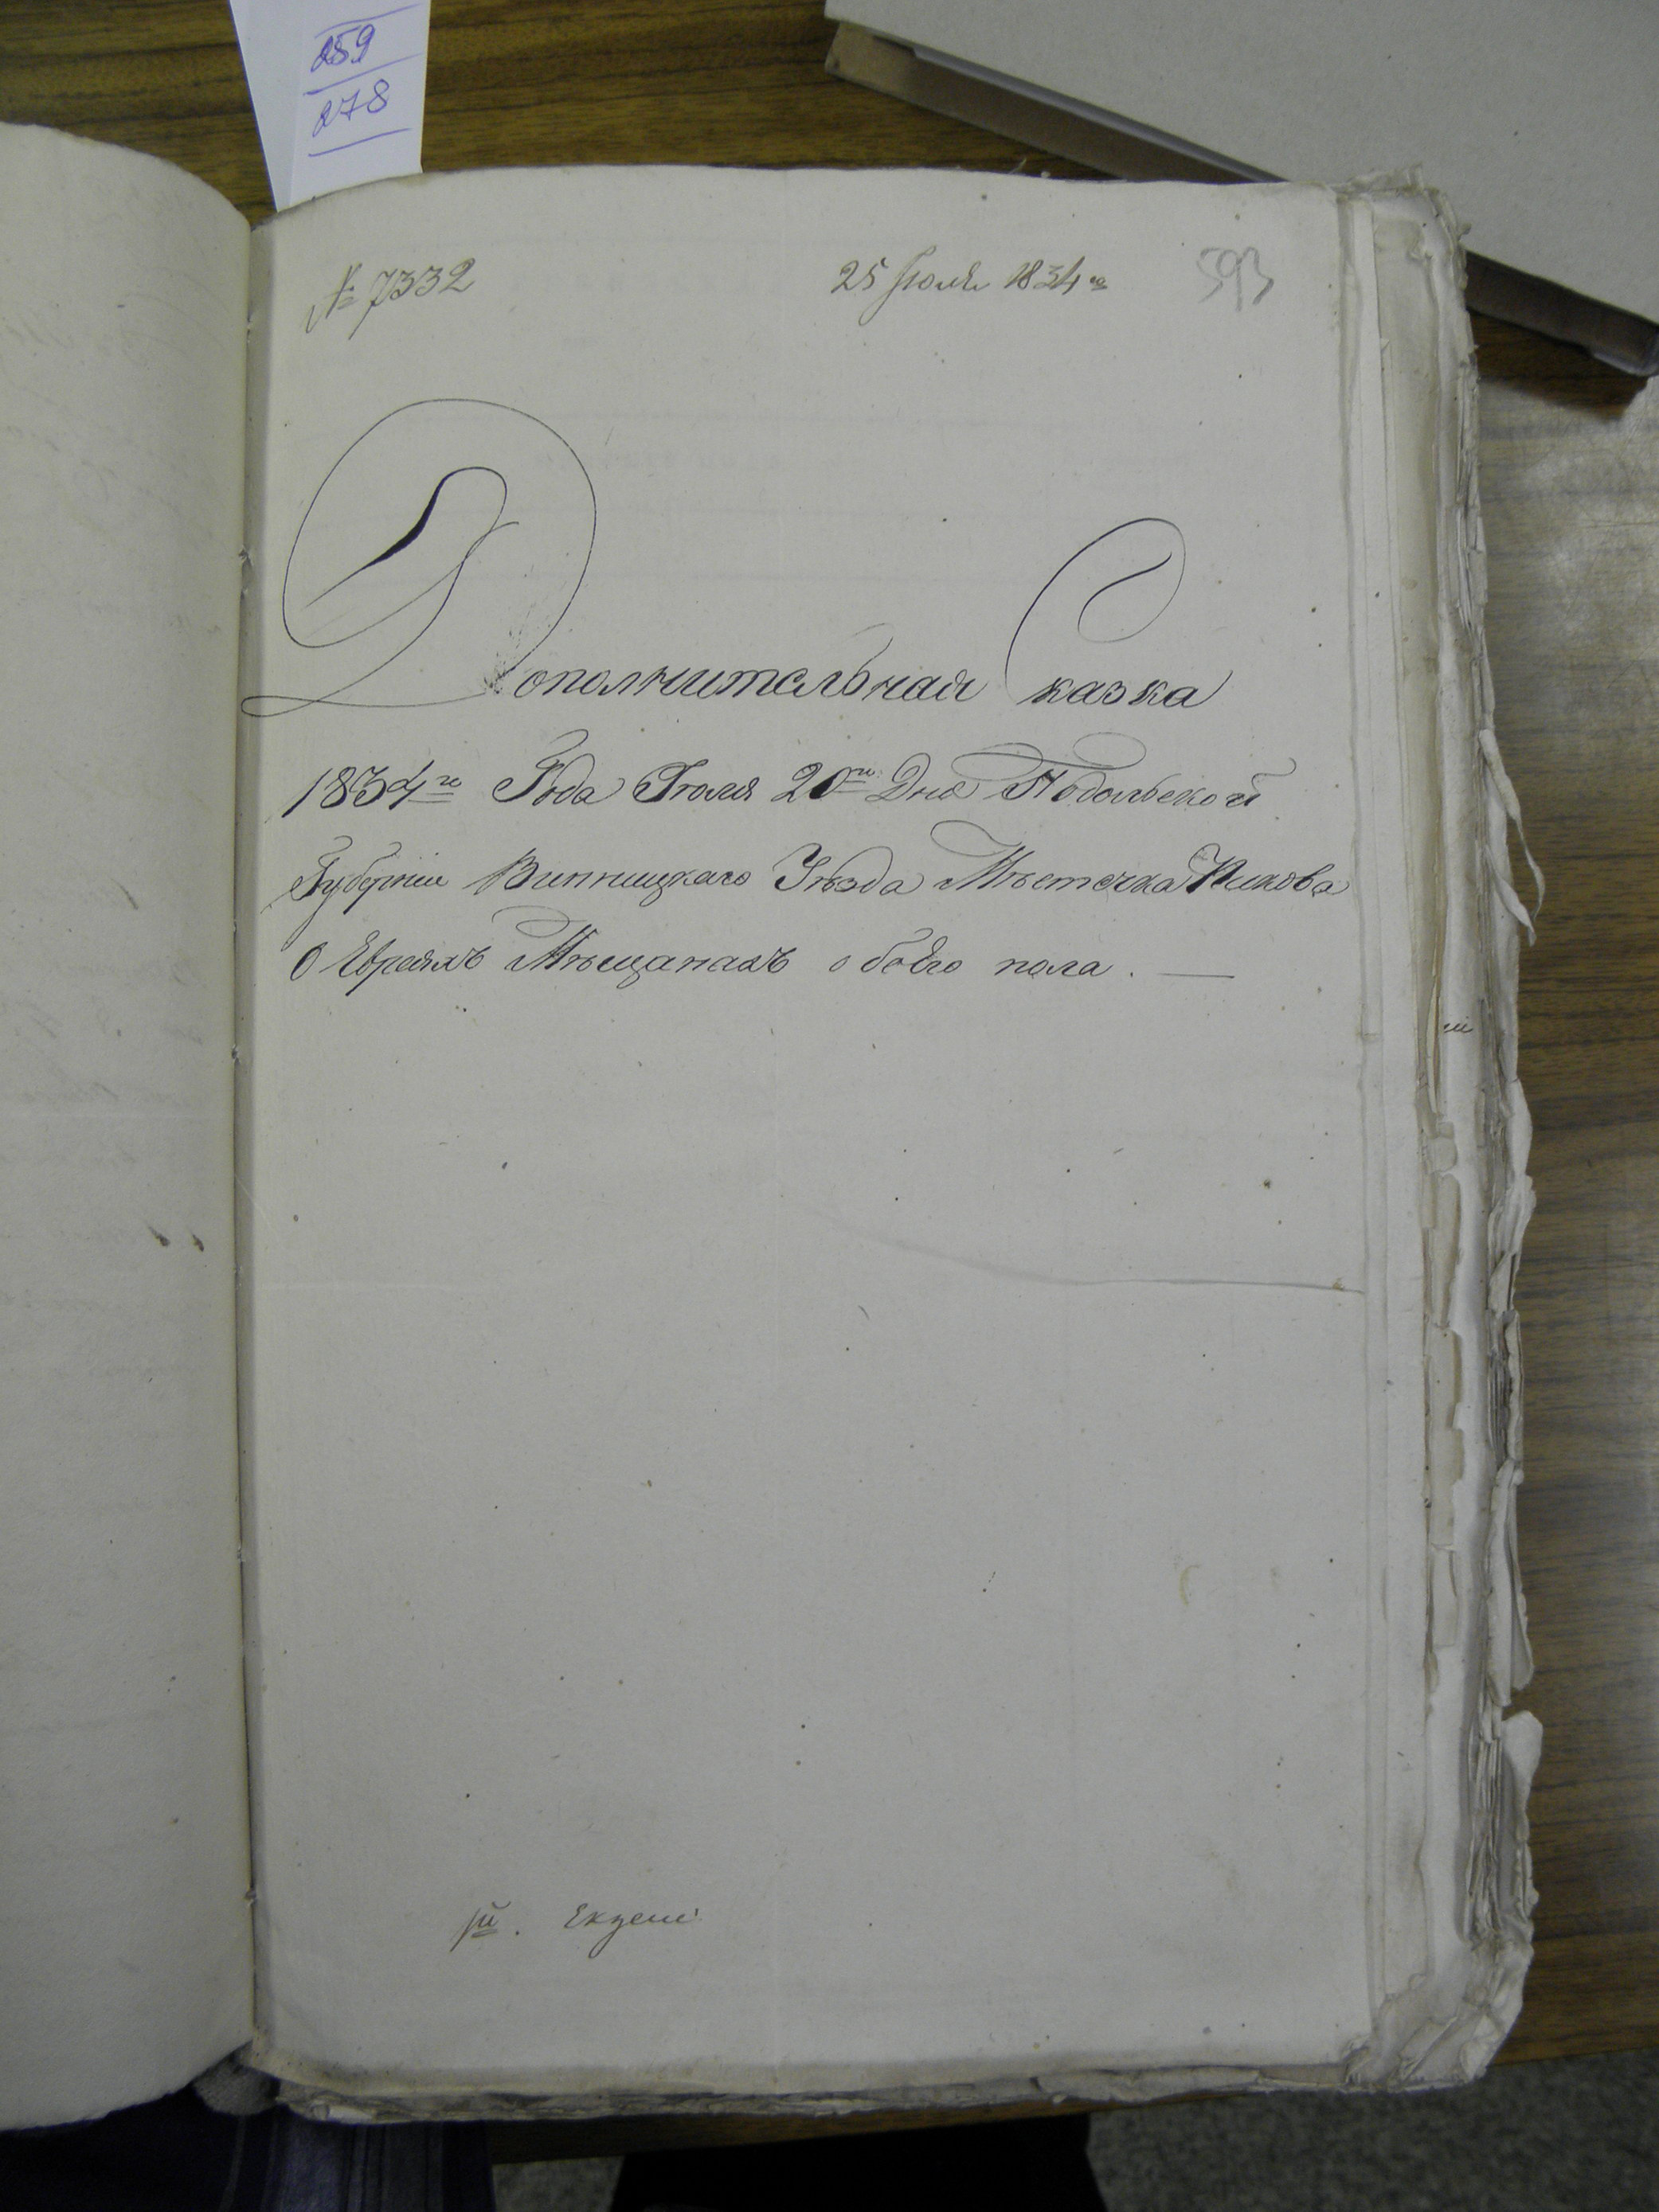 259
278
№ 7332 25 Іюля 1834го 593
Дополнительная Сказка
1834го Года Іюля 20го Дня Подольской
Губерніи Винницкаго Уѣзда Мѣстечка Пикова
О Евреяхъ Мѣщанахъ обоего пола. —